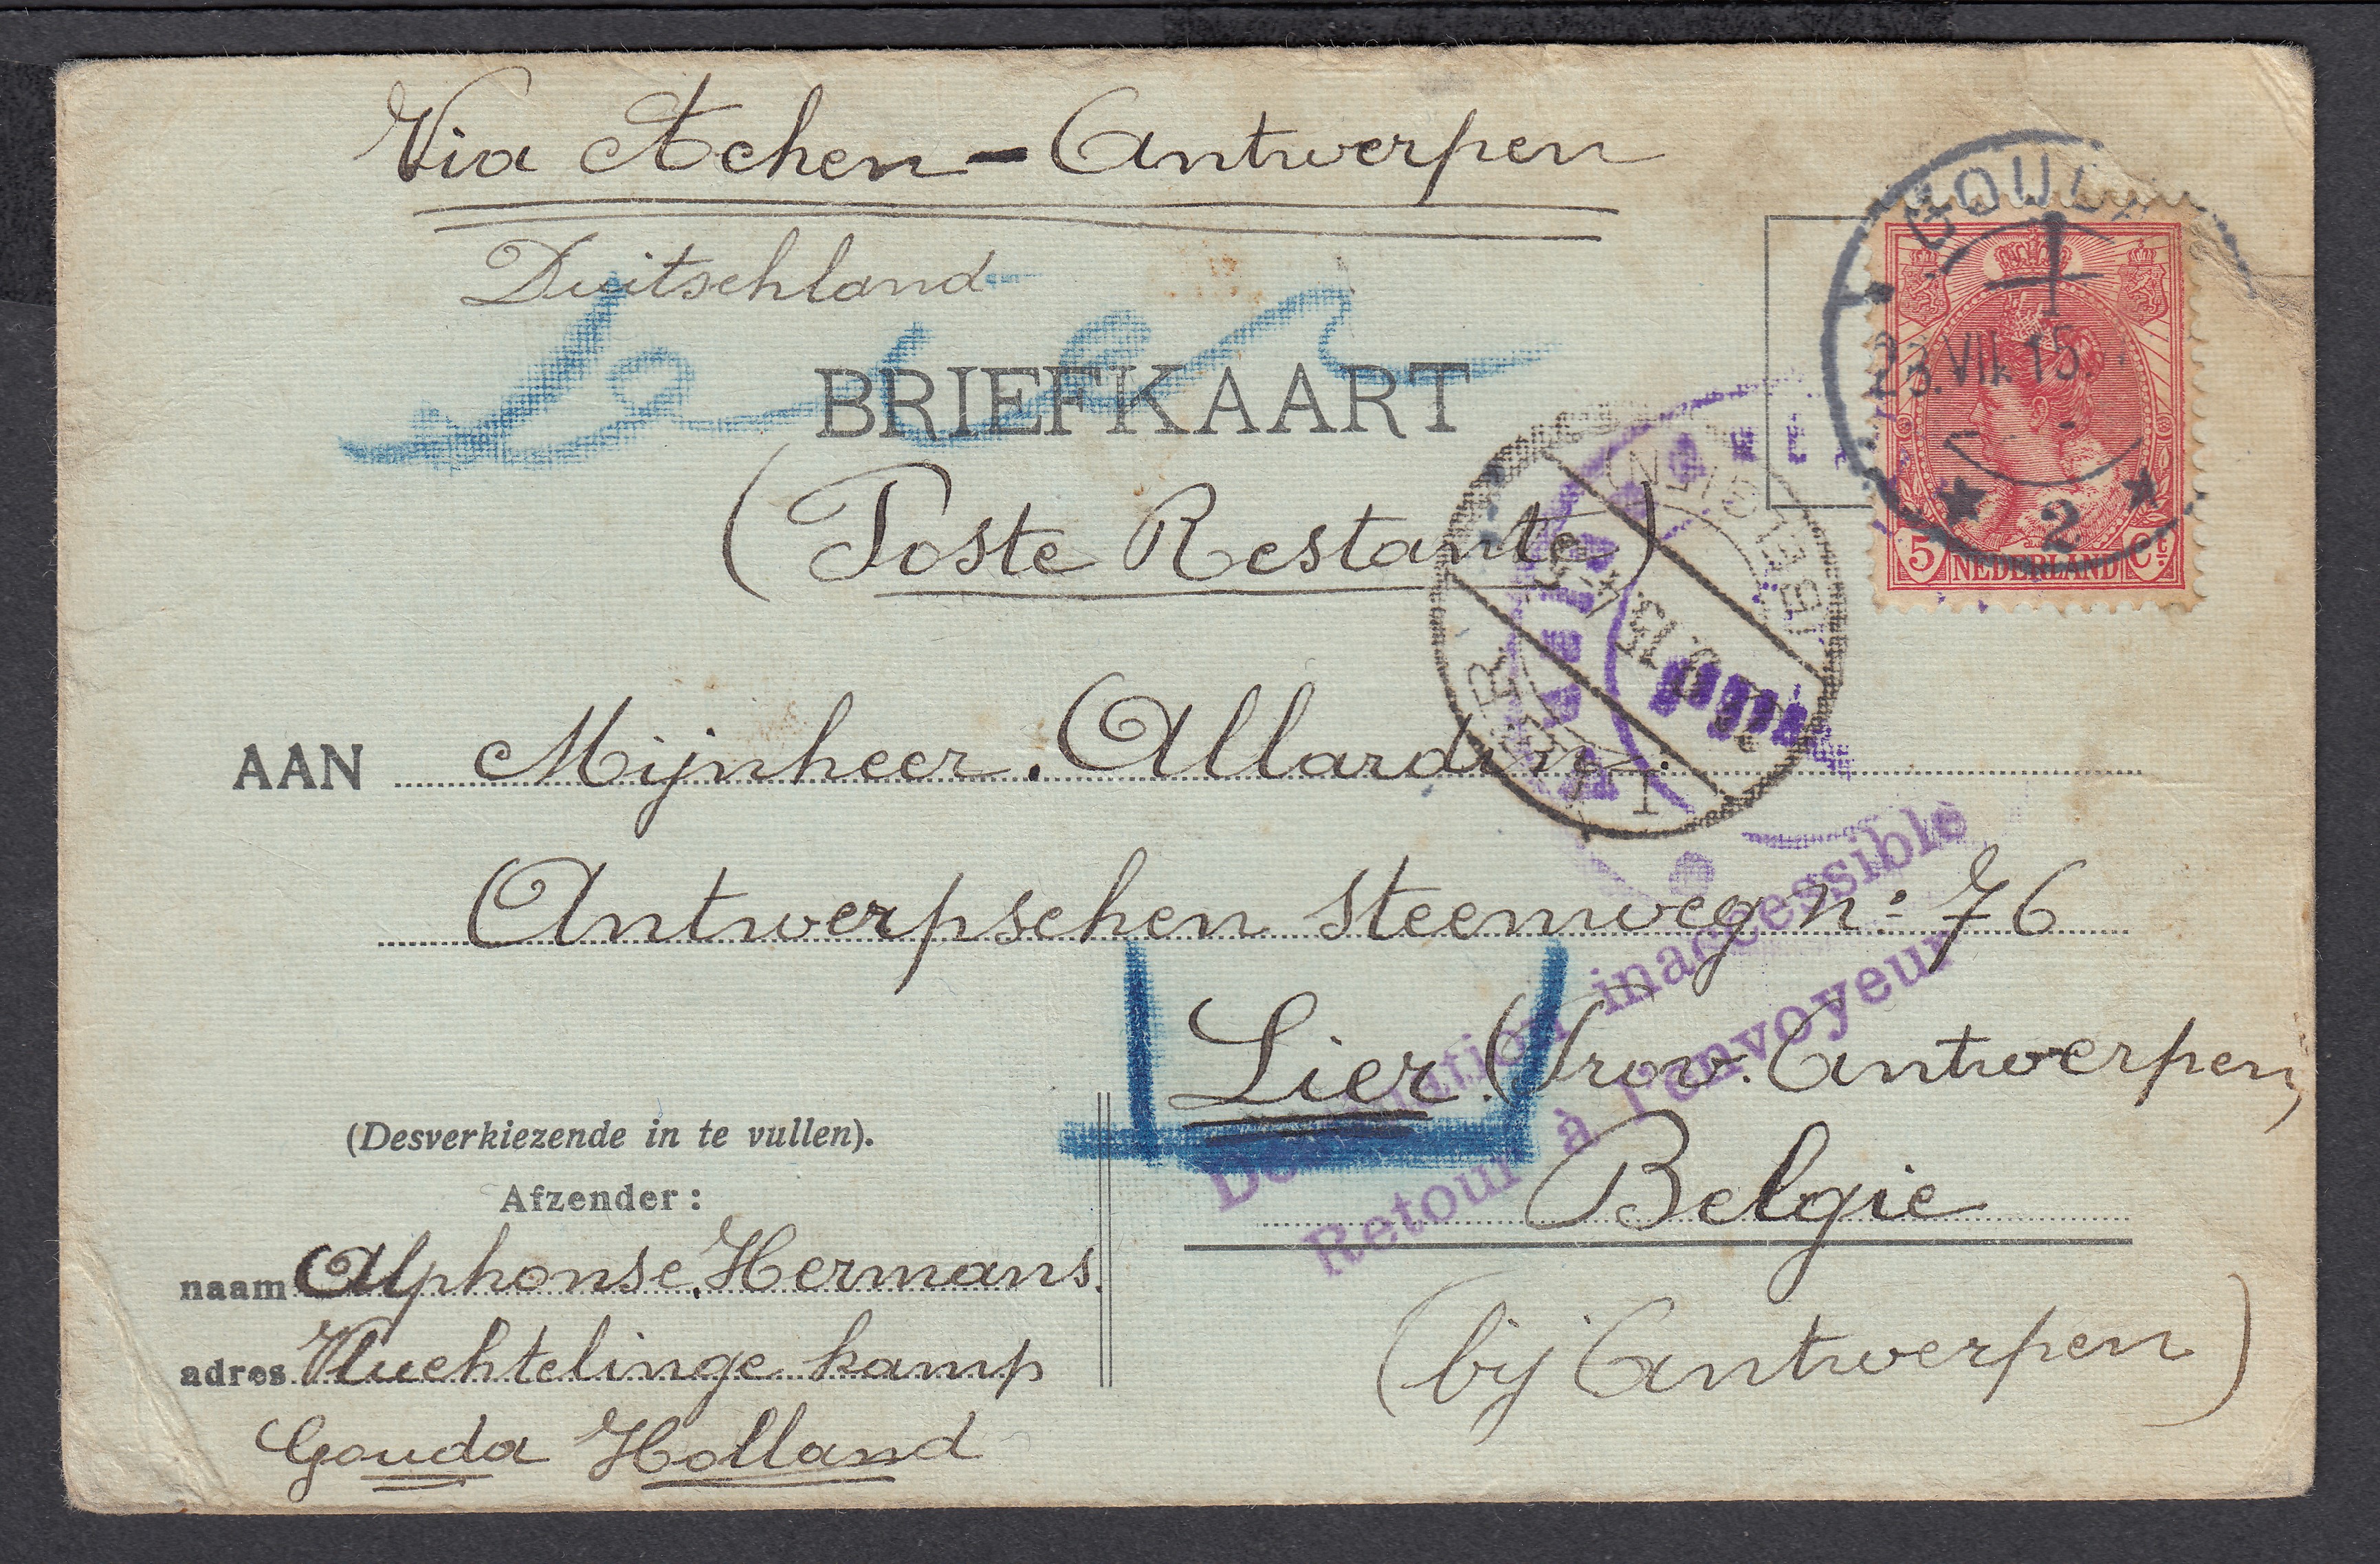 Via Achen - Antwerpen
Duitschland
BRIEFKAART
(Poste Restante)
GOUDA
23.VII.15
2
5 NEDERLAND Ct
AAN Mijnheer. Allardin.
Antwerpschen steenweg n: 76
Lier. (Prov. Antwerpen)
België
(bij Antwerpen)
Destination inaccessible
Retour à l'envoyeur
(Desverkiezende in te vullen).
Afzender:
naam Alphonse. Hermans.
adres Vluchtelinge kamp
Gouda Holland